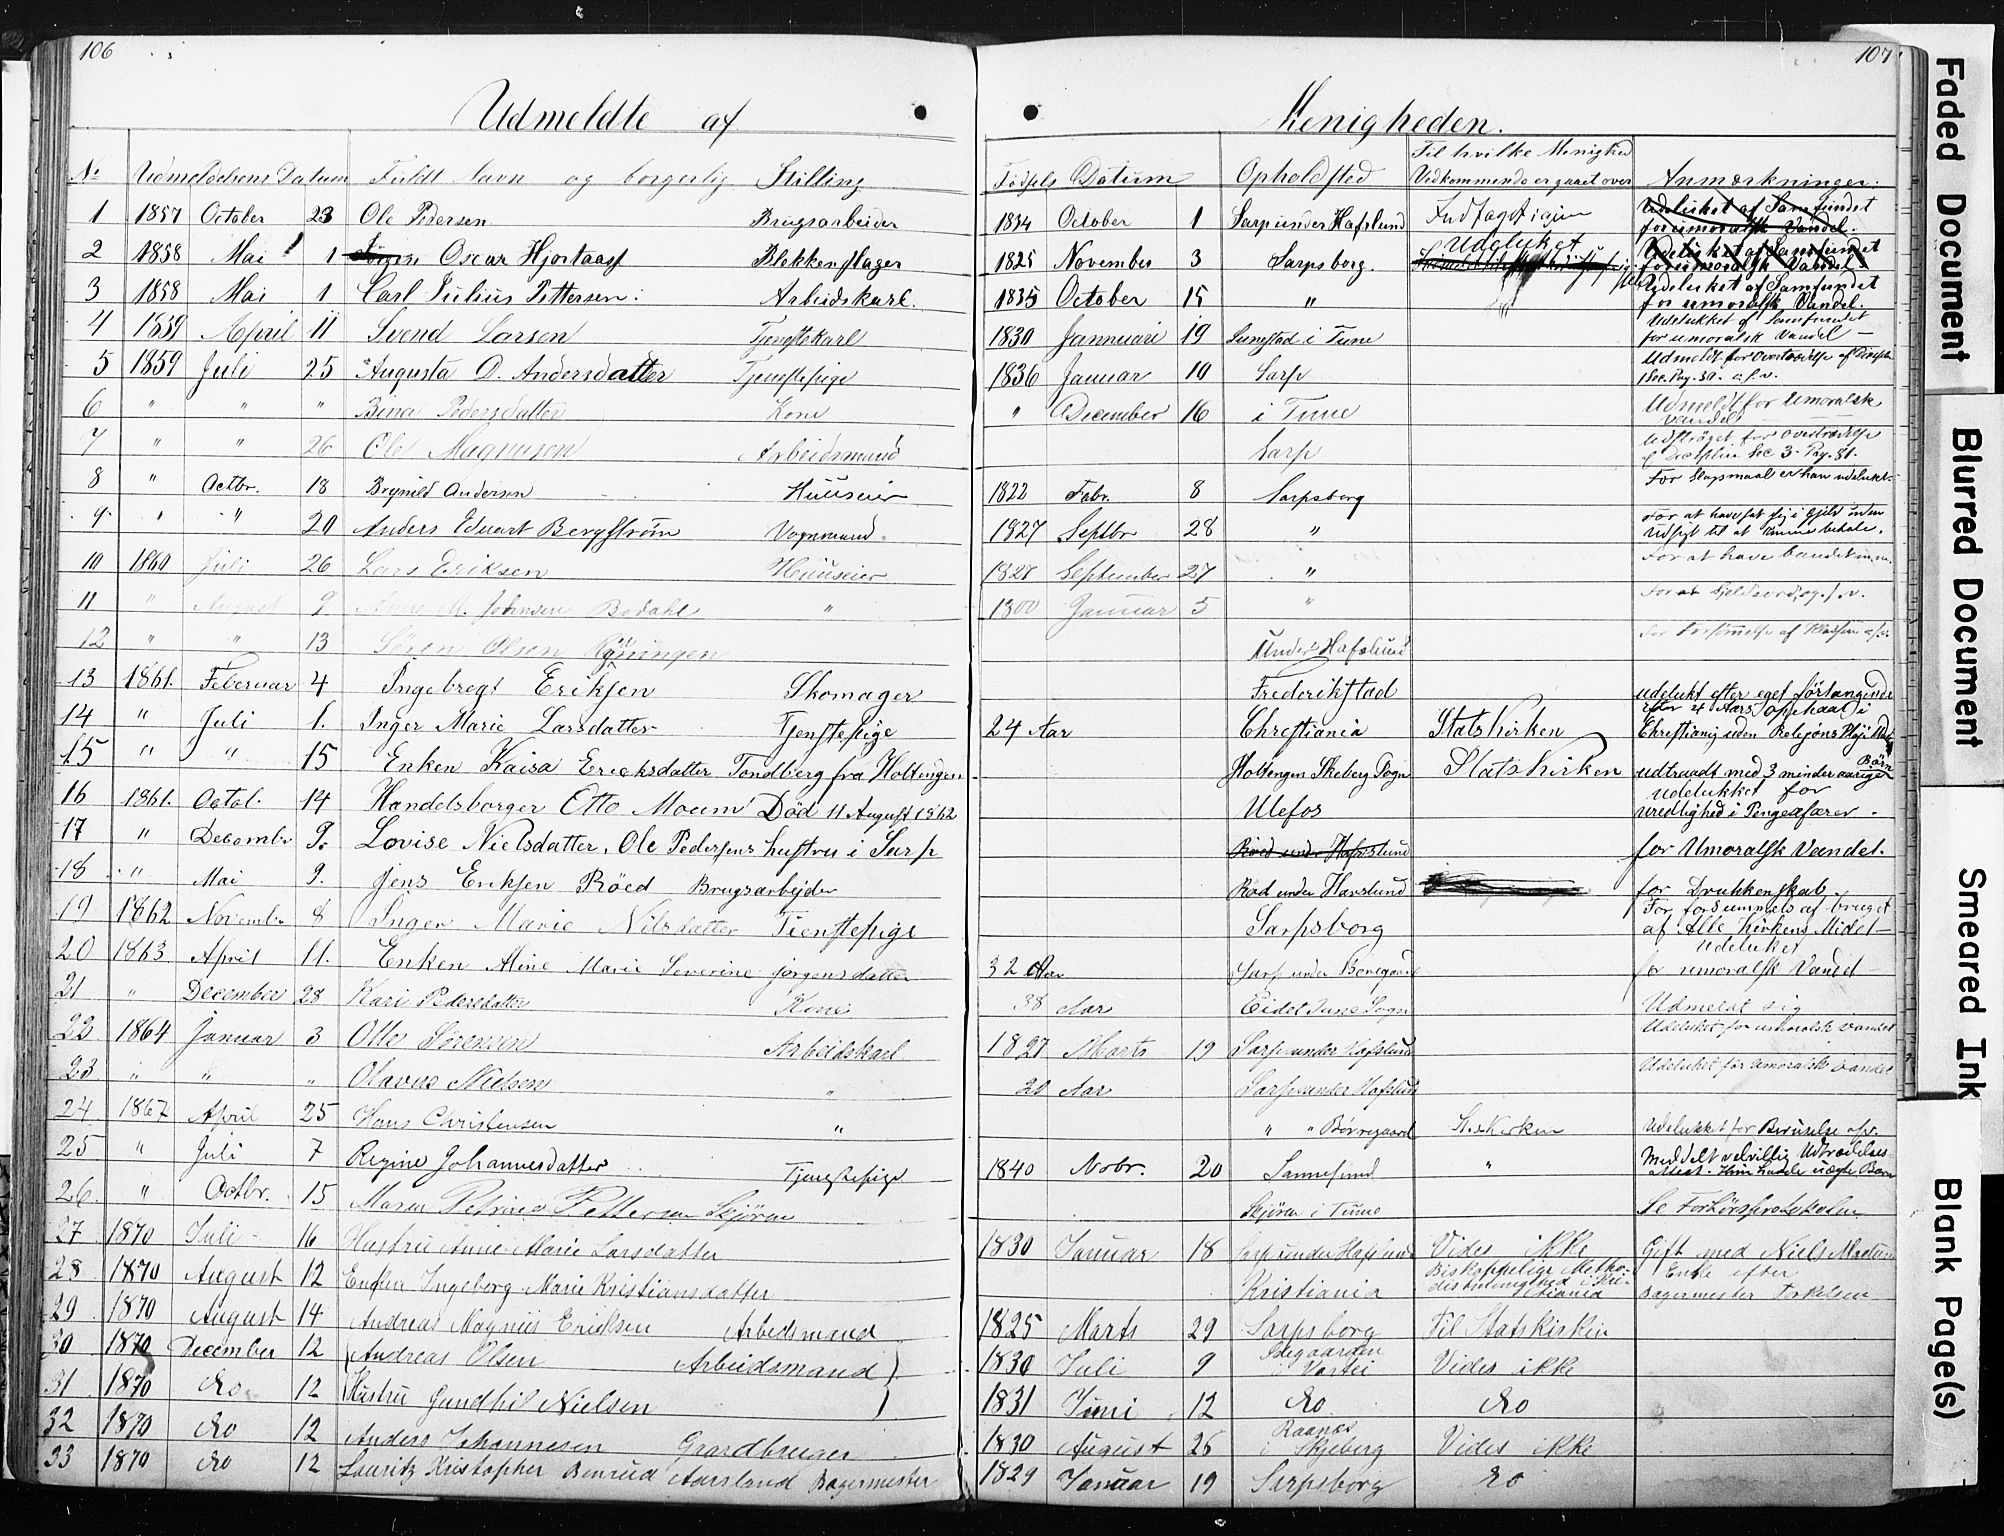 106
107
Udmeldte af Menigheden.
No Udmeldelsens Datum Fuldt Navn og borgerlig Stilling Fødsels Datum Opholdsted Til hvilke Menighed Vedkommende er gaaet over Anmærkninger:
1 1857 October 23 Ole Pedersen Brugsarbeider 1834 October 1 Sarp under Hafslund Indtaget igjen Udelukket af Samfundet for umoralsk Vandel.
2 1858 Mai 1 Oscar Hjortaas Blekkenslager 1825 November 3 Sarpsborg. Udeluket Udelukket af Samfundet for umoralsk Vandel.
3 1858 Mai 1 Carl Julius Pettersen: Arbeidskarl. 1835 October 15 " Udelukket af Samfundet for umoralsk Vandel.
4 1859 April 11 Svend Larsen Tjenstekarl 1830 Jannuari 19 i Tune Udelukket af Samfundet for umoralsk Vandel
5 1859 Juli 25 Augusta D. Andersdatter Tjenstepige 1836 Januar 10 Sarp Udmeldt for overtrædelse af
6 " " " Bina Pedersdatter Kone " December 16 i Tune Udmeldt for Umoralsk Vandel
7 " " 26 Ole Magnusen Arbeidsmand Sarp for overtrædelse Sec 3. Pag. 81.
8 " Octbr. 18 Brynild Andersen Huuseier 1822 Febr. 8 Sarpsborg For Slagsmaal er han udelukt
9 " " 20 Anders Eduart Bergstrøm Vognmand 1827 Septbr 28 " For at have sat sig i Gjeld uden Udsigt til at kunne betale.
10 1860 Juli 26 Lars Eriksen Huuseier 1828 September 27 " For at have bandet m.m.
11 " August 9 Anne M. Johnsen Bodahl " 1800 Januar 5 "
12 " " 13 Søren Olsen Under Hafslund For Forsømmelse af Klassen
13 1861. Februar 4 Ingebregt Eriksen Skomager Frederikstad udelukt efter eget Forlangende
14 " Juli 1. Inger Marie Larsdatter Tjenstepige 24 Aar Christiania Statskirken efter 4 Aars ophaal i Christiania uden
15 " " 15 Enken Kaisa Ericksdatter Tondberg fra Holtengen Holtengen Skeberg Sogn Statskirken udtraadt med 3 minder aarige Børn
16 1861. Octob. 14 Handelsborger Otto Moum Død 11 August 1862 Ulefos udelukket for uredlighed i Pengeafærer.
17 " Decembr 9. Lovise Nielsdatter, Ole Pedersens hustru i Sarp Röed under Hafslund for Umoralsk Vandel.
18 " Mai 9. Jens Eriksen Röed Brugsarbejder Röd under Havslund for Drukkenskab
19 1862 Novembr 8 Inger Marie Nilsdatter Tienstepige Sarpsborg For forsummels af bruget af Alle Kirkens Midel
20 1863 April 11. Enken Aline Marie Severine jörgensdatter 32 Aar Sarp under Boregaard udeluket for umoralsk Vandel
21 " December 28 Kari Pedersdatter Kone 38 Aar Eidet Tune Sogn Udmeldt sig
22 1864 Januar 3 Otte Sørensen Arbeidskarl 1827 Marts 19 Sarp under Hafslund Udeluket for umoralsk vandel
23 " " " Olavus Nielsen " 20 Aar Sarp under Hafslund Udeluket for umoralsk vandel
24 1867 April 25 Hans Christensen " " " Borregaard St.Kirken Udelukket for Beruselse
25 " Juli 7 Regine Johannesdatter Tjenstepige 1840 Nobr. 20 Sannesund " Meddelt velvillig Udtrædelses-attest. Hun havde uægte Barn
26 " Octbr. 15 Maren Petrine Pettersen Skjören Skjören i Tune Se Forhörsprotokolen
27 1870 Juli 16 Hustru Anne Marie Larsdatter 1830 Januar 18 Sarp under Hafslund Vides ikke Gift med Niels
28 1870 August 12 Enken Ingeborg Marie Kristiansdatter Kristiania Biskoppelige Methodistmenighed i Kristiania Enke efter Bagermester
29 1870 August 14 Andreas Magnus Ericksen Arbedsmand 1825 Marts 29 Sarpsborg Til Statskirken
30 1870 December 12 (Andreas Olsen Arbeidsmand) 1830 Juli 9 Ødegaarden i Vartei Vides ikke
31 1870 do 12 (Hustru Gundhil Nielsen ) 1831 Juni 12 do do
32 1870 do 12 Anders Johannesen Gaardbruger 1830 August 26 i Skjeberg Vides ikke
33 1870 do 12 Lauritz Kristopher Benrud Aarsland Bagermester 1829 Januar 19 Sarpsborg do
Faded Document
Blurred Document
Smeared Ink
Blank Page(s)